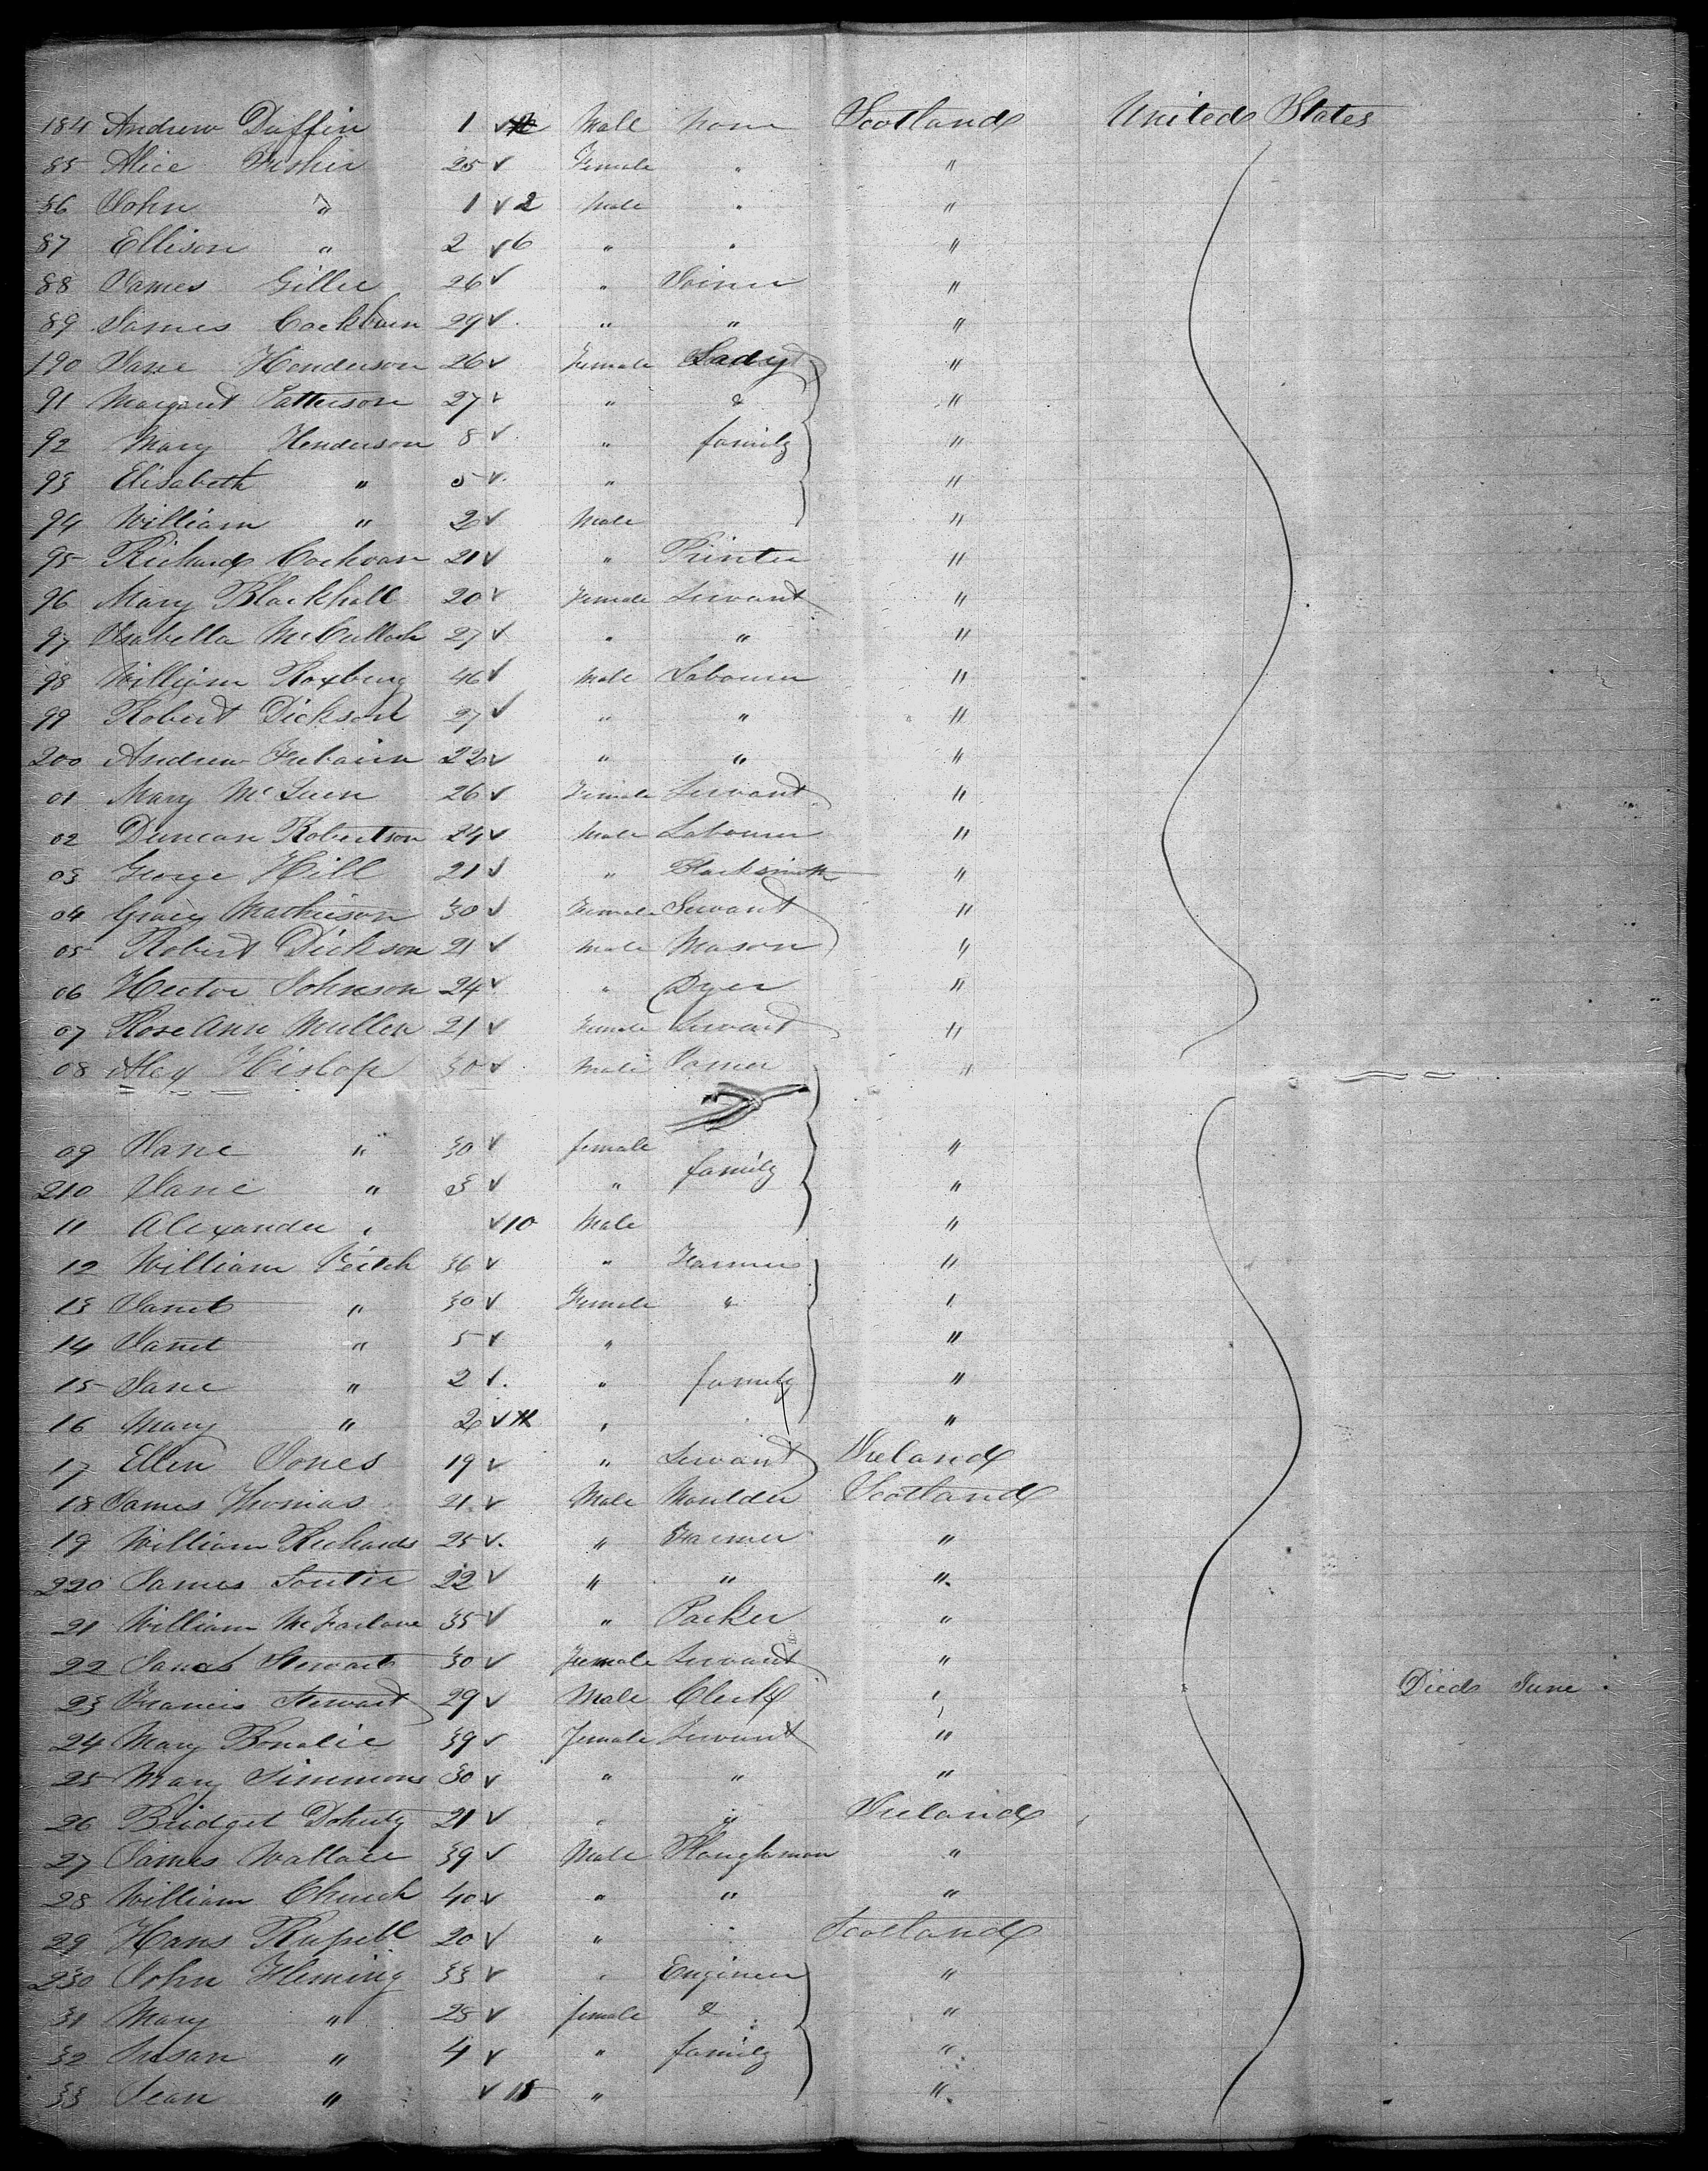 184 Andrew Duffin 1 Male None Scotland United States
85 Alice Fisher 25 Female "
86 John " 1 2 Male " "
87 Ellison " 2 6 " " "
88 James Gillie 26 " Joiner "
89 James Cockburn 29 " " "
190 Jane Henderson 26 Female Lady "
91 Margaret Patterson 27 " & "
92 Mary Henderson 8 " family "
93 Elisabeth " 5 " "
94 William " 2 Male "
95 Richard Cochran 21 " Printer "
96 Mary Blackhall 20 Female Servant "
97 Isabella McCulloch 27 " " "
98 William Roxburg 46 Male Labourer "
99 Robert Dickson 27 " " "
200 Andrew 22 " " "
01 Mary McQueen 26 Female Servant "
02 Duncan Robertson 24 Male Labourer "
03 George Hill 21 " Blacksmith "
04 Gracy Mathieson 30 Female Servant "
05 Robert Dickson 21 Male Mason "
06 Hector Johnson 24 " Dyer "
07 Rose Ann Mullen 21 Female Servant "
08 Alex Hislop 30 Male "
09 Jane " 30 female "
210 Jane " 3 " family "
11 Alexander " 10 Male "
12 William Veitch 36 " Farmer "
13 Janet " 30 Female & "
14 Janet " 5 " "
15 Jane " 2 " family "
16 Mary " 2 " "
17 Ellen Jones 19 " Servant Ireland
18 James Thomas 21 Male Moulder Scotland
19 William Richards 25 " Farmer "
220 James Souter 22 " " "
21 William McFarlane 35 " Packer "
22 Stewart 30 Female Servant "
23 Francis Stewart 29 Male Clerk " Died June
24 Mary 39 Female Servant "
25 Mary Simmons 30 " " "
26 Bridget Doherty 21 " " Ireland
27 James Wallace 39 Male Ploughman "
28 William Church 40 " " "
29 Hans Russell 20 " " Scotland
230 John Fleming 33 " Engineer "
31 Mary " 28 female & "
32 Susan " 4 " family "
33 Jean " " "